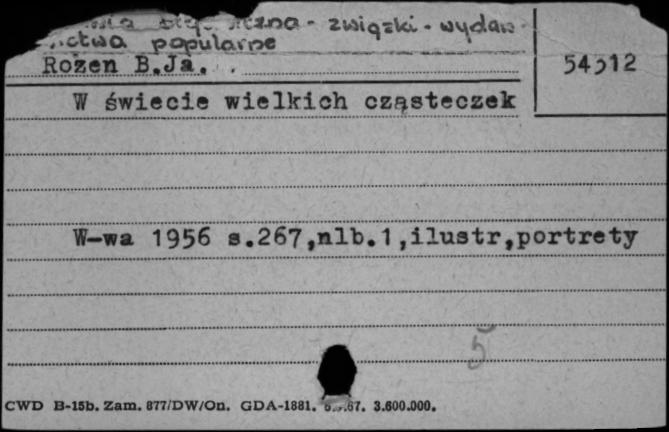 związki - wydaw-
nictwa popularne
Rozen B.Ja.
54312
W świecie wielkich cząsteczek
W-wa 1956 s.267,nlb.1,ilustr,portrety
5
CWD B-15b. Zam. 877/DW/On. GDA-1881. 3.600.000.